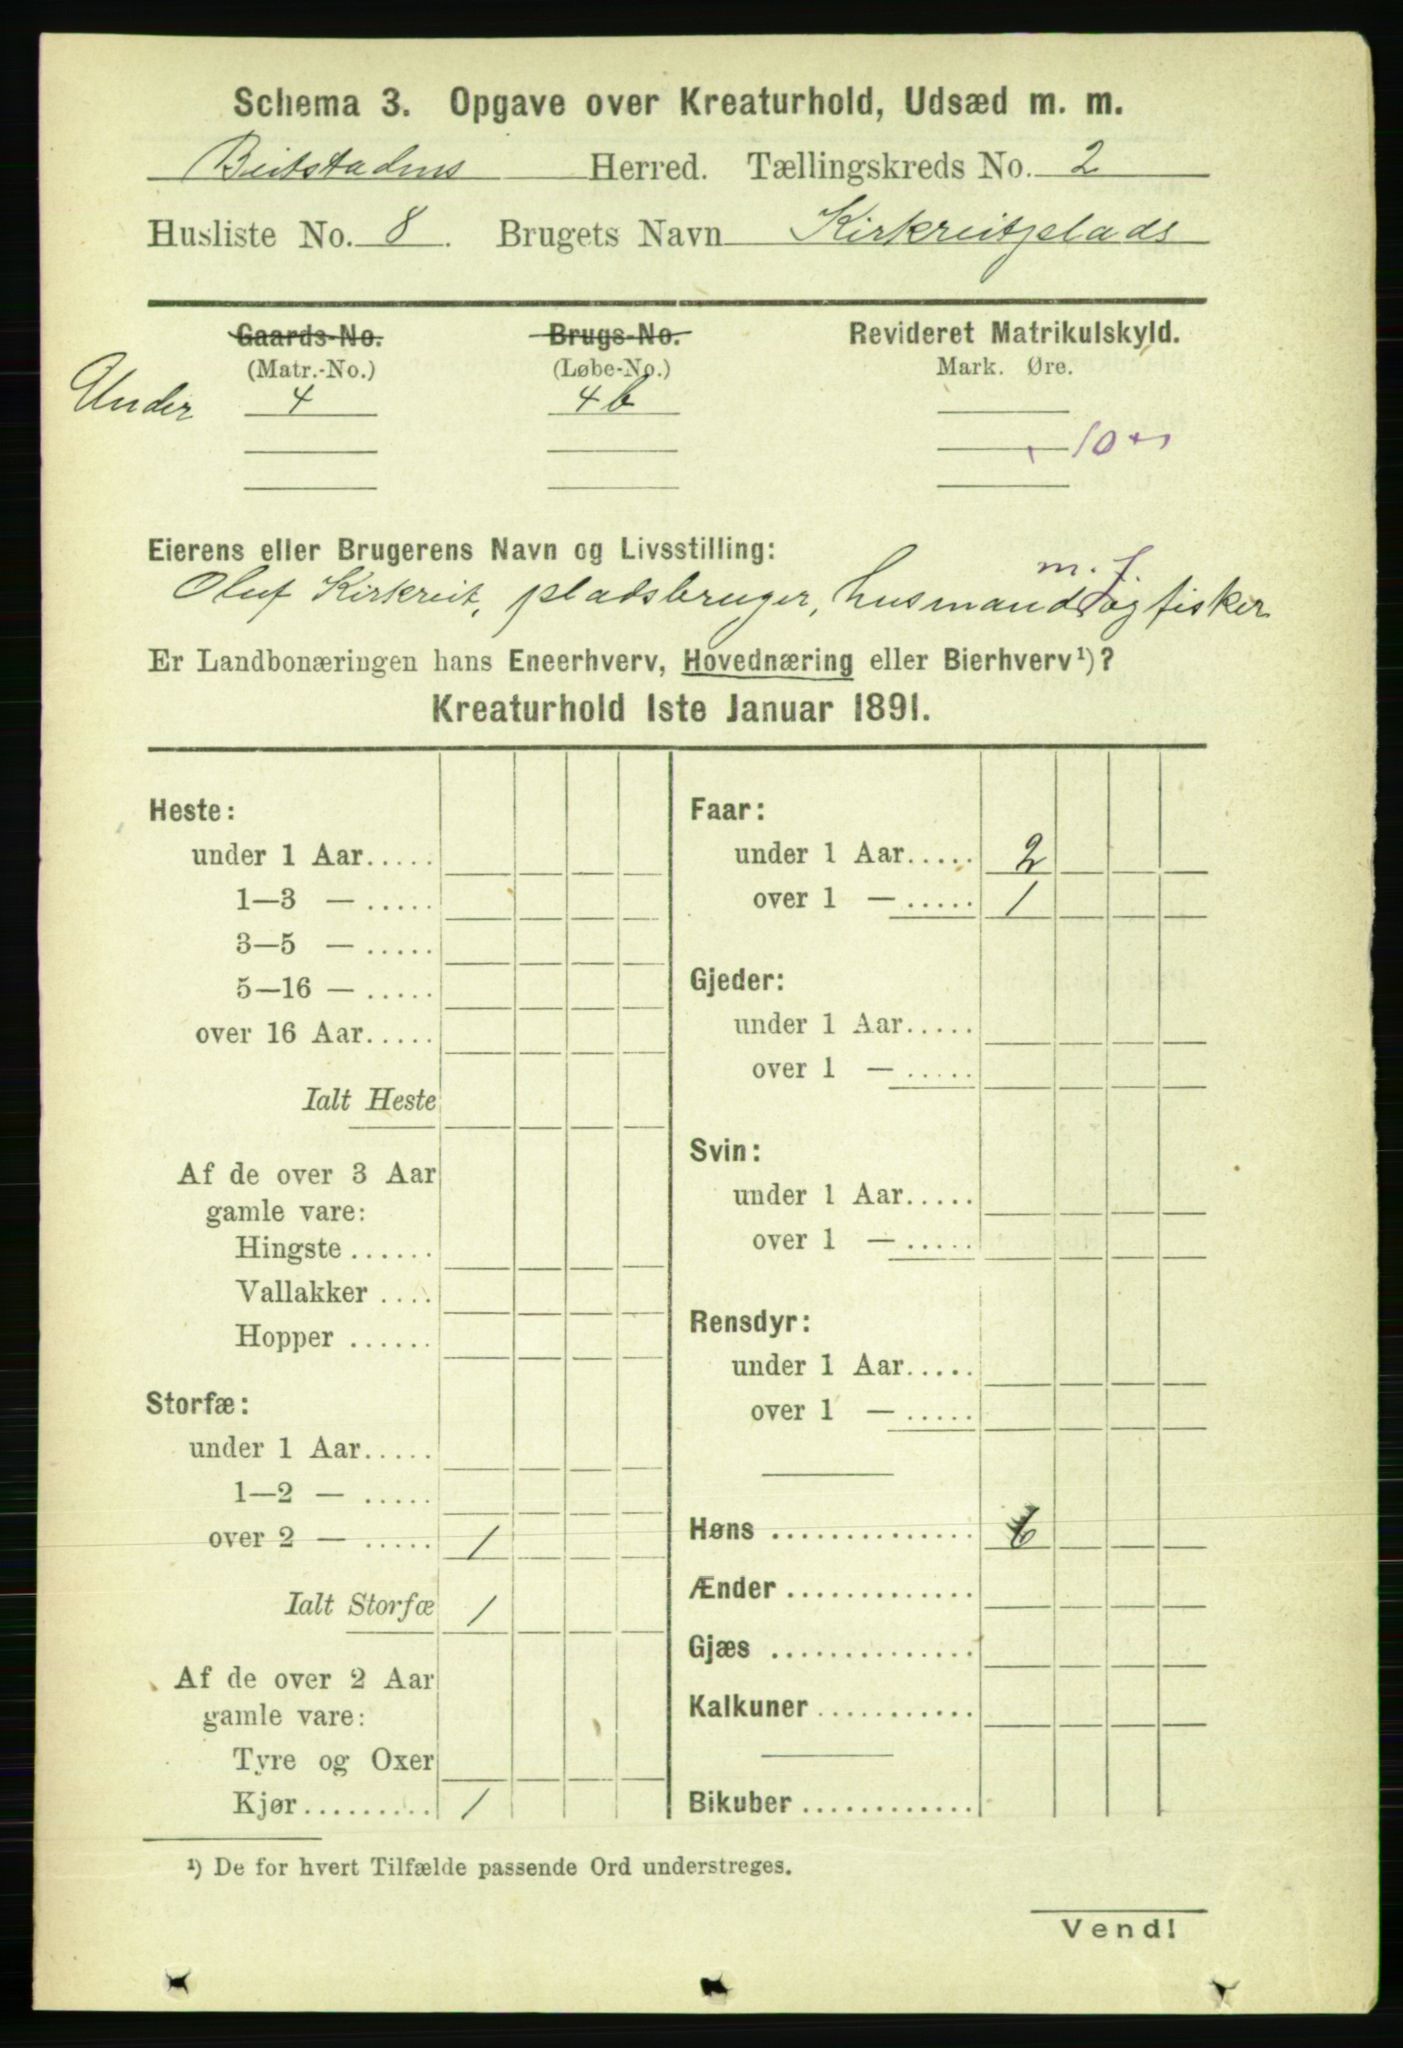 Schema 3. Opgave over Kreaturhold, Udsæd m. m.
Beitstadens Herred. Tællingskreds No. 2
Husliste No. 8. Brugets Navn Kirkreitplads
Gaards-No. Brugs-No. Revideret Matrikulskyld.
(Matr.-No.) (Løbe-No.) Mark. Øre.
Under 4 4b
, 10
Eierens eller Brugerens Navn og Livsstilling:
m. j.
Oluf Kirkreit, pladsbruger, husmand og fisker
Er Landbonæringen hans Eneerhverv, Hovednæring eller Bierhverv¹)?
Kreaturhold 1ste Januar 1891.
Heste:
under 1 Aar.....
1—3 — .....
3—5 — .....
5—16 — .....
over 16 Aar.....
Ialt Heste
Af de over 3 Aar
gamle vare:
Hingste ......
Vallakker ....
Hopper ......
Storfæ:
under 1 Aar.....
1—2 — .....
over 2 — ..... 1
Ialt Storfæ 1
Af de over 2 Aar
gamle vare:
Tyre og Oxer
Kjør......... 1
Faar:
under 1 Aar..... 2
over 1 — ..... 1
Gjeder:
under 1 Aar.....
over 1 — .....
Svin:
under 1 Aar.....
over 1 — .....
Rensdyr:
under 1 Aar.....
over 1 — .....
Høns .............. 6
Ænder .............
Gjæs ..............
Kalkuner ...........
Bikuber ............
¹) De for hvert Tilfælde passende Ord understreges.
Vend!